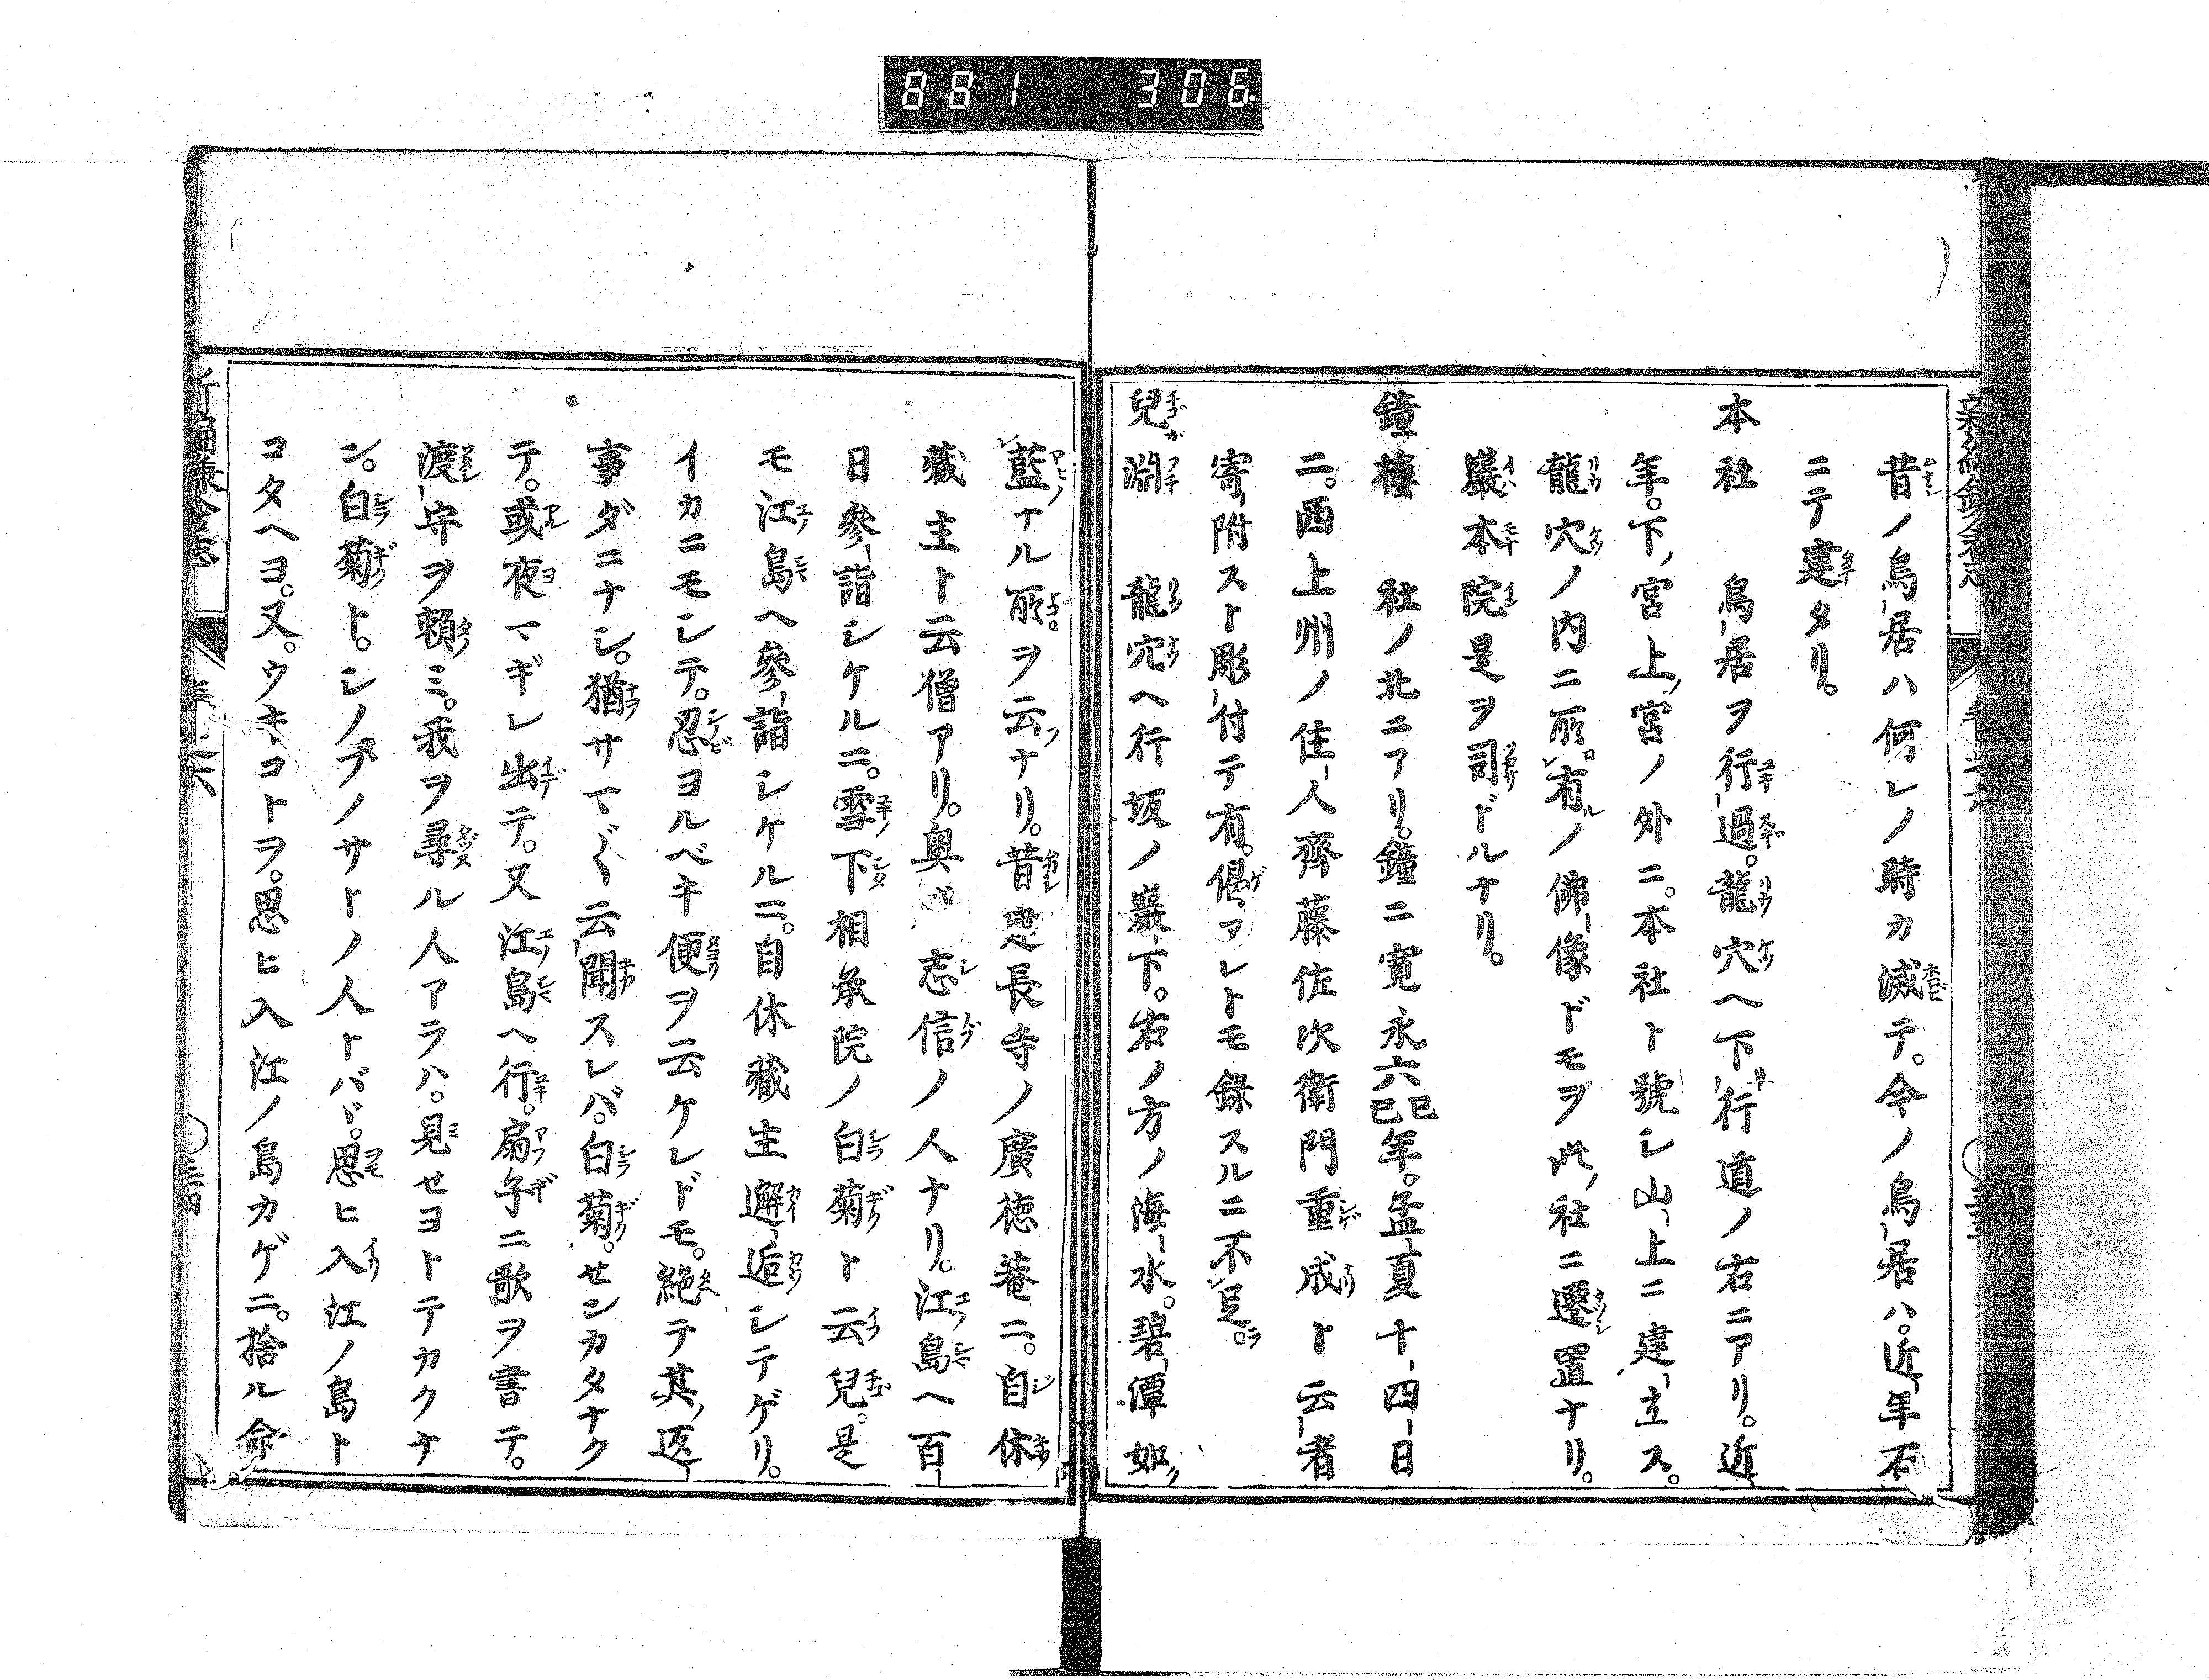 881 306
昔ノ鳥居ハ何レノ時カ滅テ。今ノ鳥居ハ。近年石
ニテ建タリ。
本社 鳥居ヲ行過。龍穴ヘ下行道ノ右ニアリ。近
年。下ノ宮上ノ宮ノ外ニ。本社ト號シ山上ニ建立ス。
龍穴ノ内ニ所有ノ佛像ドモヲ此社ニ遷置ナリ。
巖本院是ヲ司ドルナリ。
鐘樓 社ノ北ニアリ。鐘ニ寛永六己巳年。孟夏十四日
ニ。西上州ノ住人齊藤佐次衛門重成ト云者
寄附スト彫付テ有。偈アレトモ錄スルニ不足。
兒淵 龍穴ヘ行坂ノ巖下。右ノ方ノ海水。碧潭如
藍ナル所ヲ云ナリ。昔建長寺ノ廣徳菴ニ。自休
藏主ト云僧アリ。奥州志信ノ人ナリ。江島ヘ百
日參詣シケルニ。雪下相承院ノ白菊ト云兒。是
モ江島ヘ參詣シケルニ。自休藏主邂逅シテゲリ。
イカニモシテ。忍ヨルベキ便ヲ云ケレドモ。絶テ其返
事ダニナシ。猶サマ〲云聞スレバ。白菊。せンカタナク
テ。或夜マギレ出テ。又江島ヘ行。扇子ニ歌ヲ書テ。
渡守ヲ頼ミ。我ヲ尋ル人アラハ。見セヨトテカクナ
ン。白菊ト。シノブノサトノ人トバヾ。思ヒ入江ノ島ト
コタヘヨ。又。ウキコトヲ。思ヒ入江ノ島カゲニ。捨ル命
新編鎌倉志 卷之六